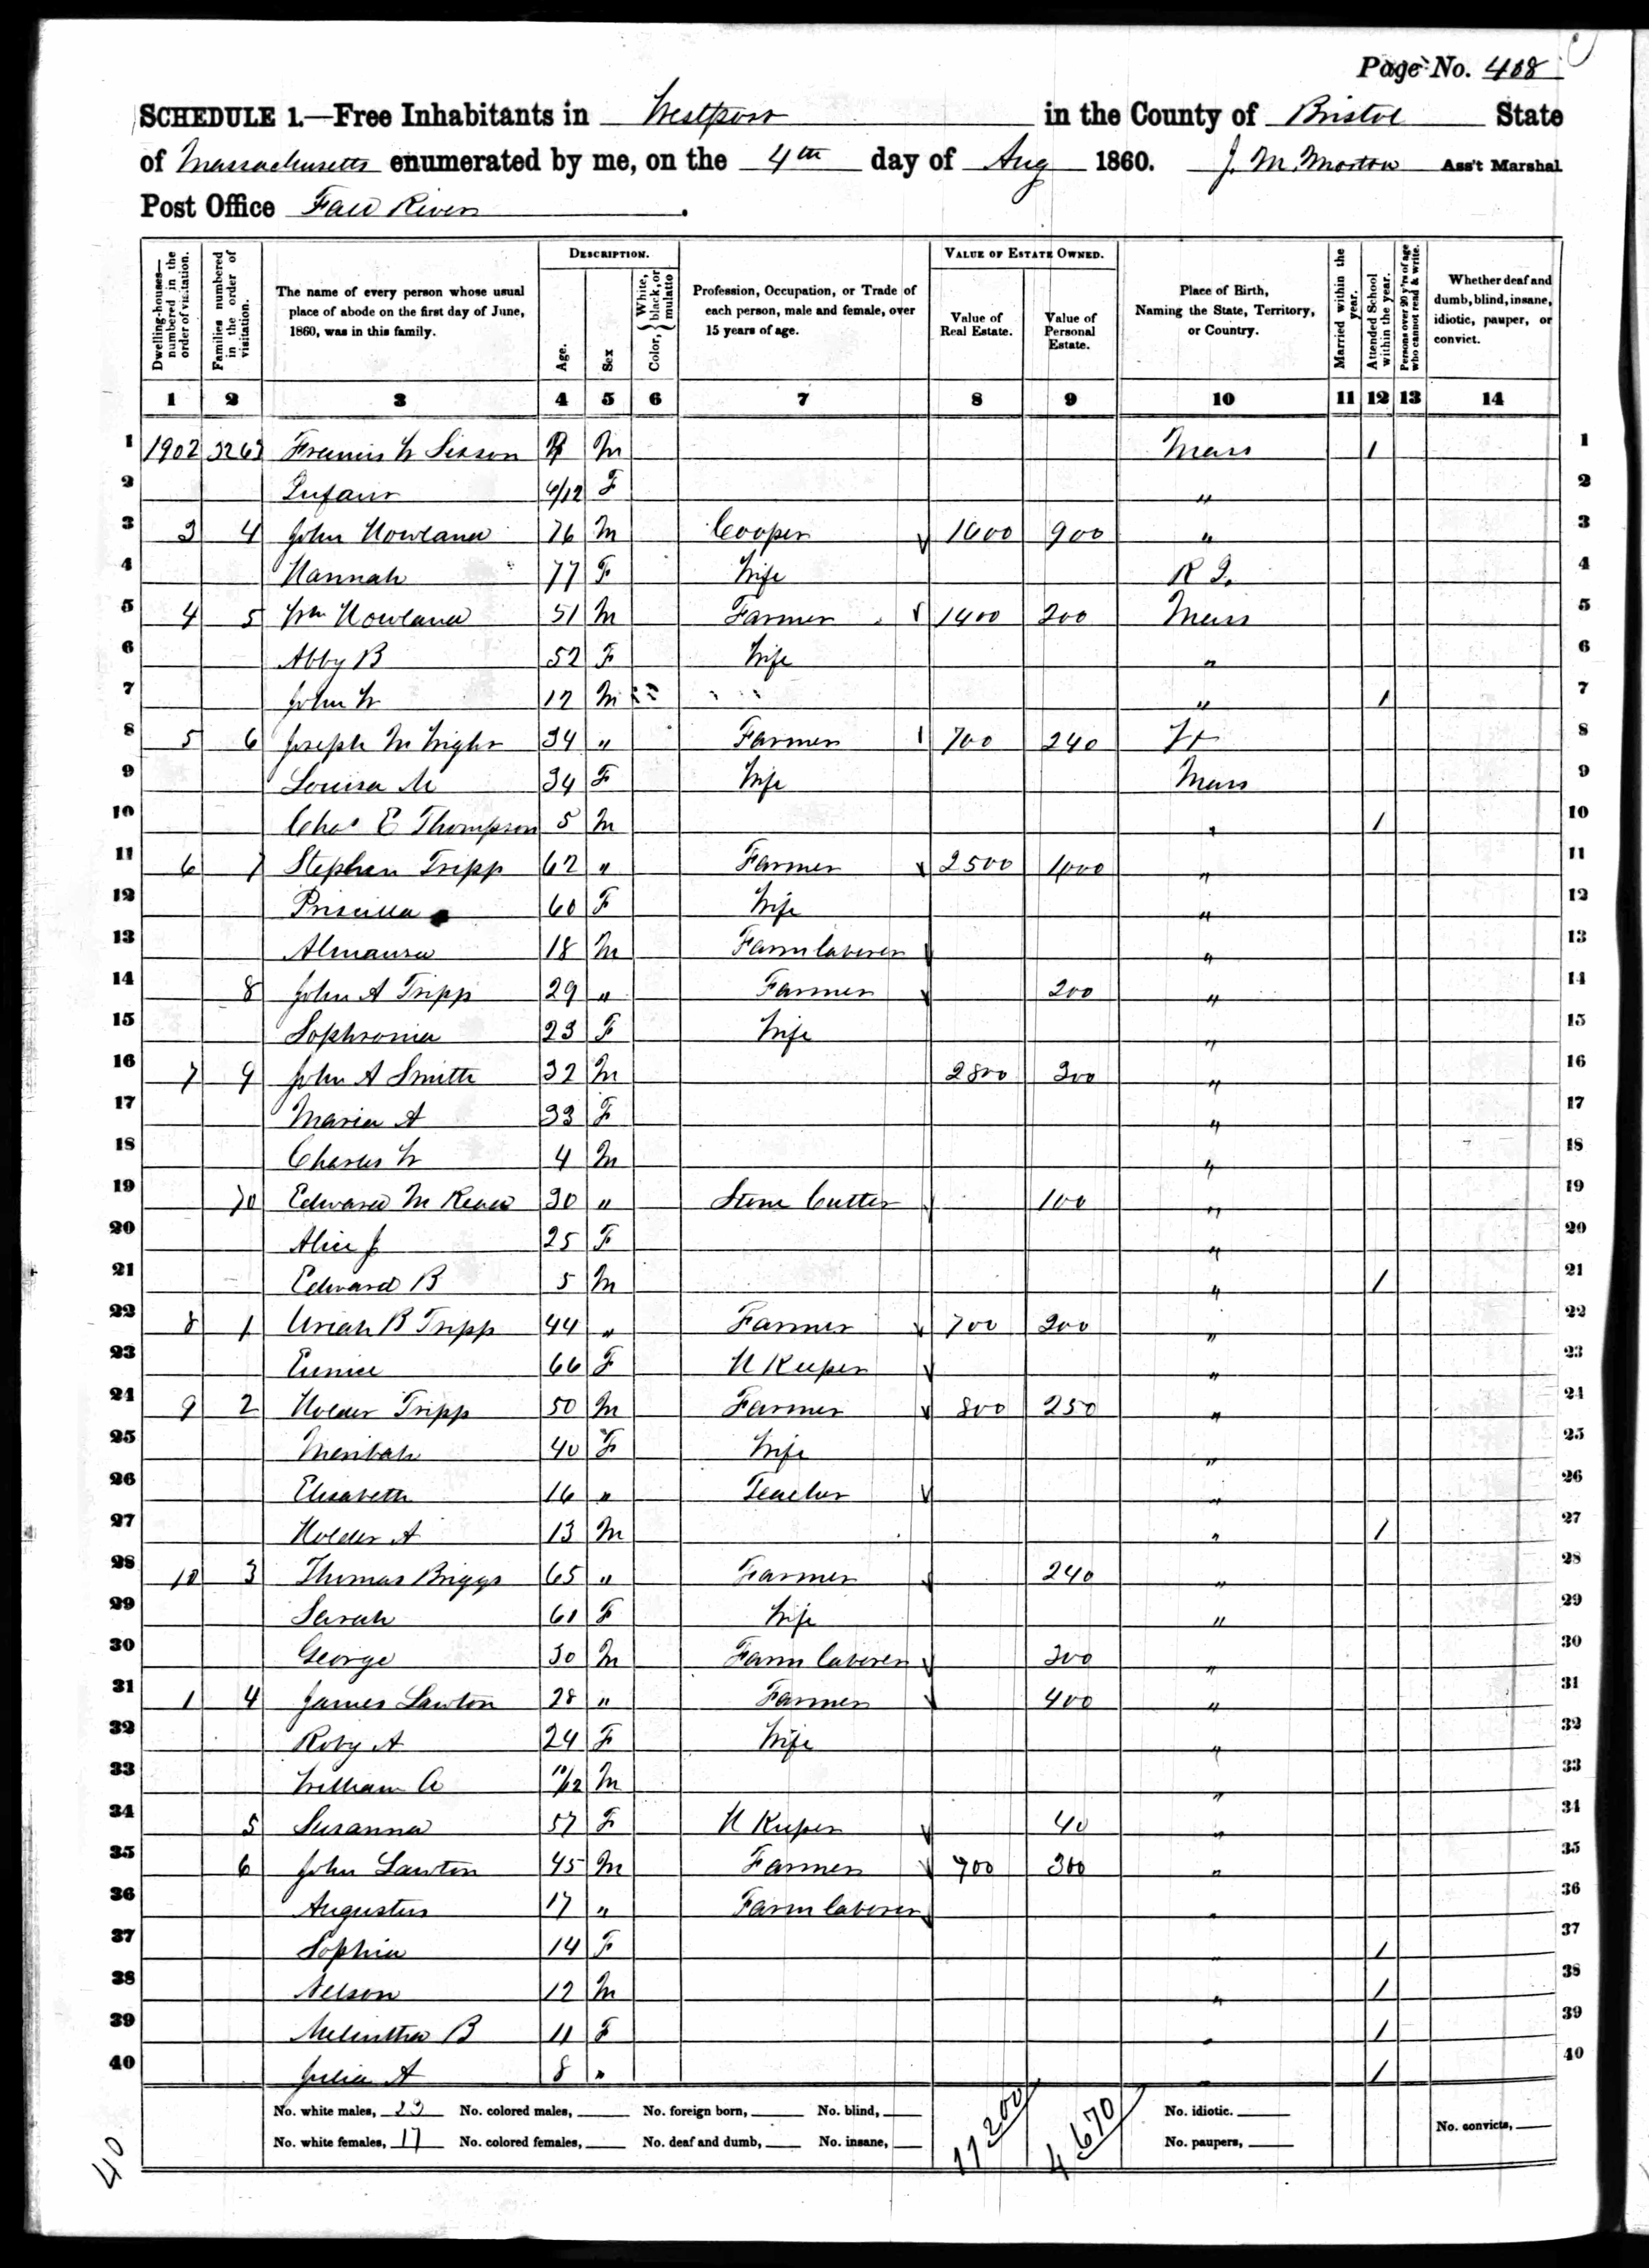 Page No. 408
SCHEDULE 1.—Free Inhabitants in Westport in the County of Bristol State
of Massachusetts enumerated by me, on the 4th day of Aug 1860. J. M. Morton Ass't Marshal
Post Office Fall River.
Dwelling-houses—numbered in the order of visitation. Families numbered in the order of visitation. The name of every person whose usual place of abode on the first day of June, 1860, was in this family. DESCRIPTION. Age. Sex Color, { White, black, or mulatto Profession, Occupation, or Trade of each person, male and female, over 15 years of age. VALUE OF ESTATE OWNED. Value of Real Estate. Value of Personal Estate. Place of Birth, Naming the State, Territory, or Country. Married within the year. Attended School within the year. Persons over 20 y'rs of age who cannot read & write. Whether deaf and dumb, blind, insane, idiotic, pauper, or convict.
1 2 3 4 5 6 7 8 9 10 11 12 13 14
1 1902 3263 Francis W Sisson M Mass 1 1
2 Infant 4/12 F " 2
3 3 4 John Howland 76 M Cooper 1000 900 " 3
4 Hannah 77 F Wife R I. 4
5 4 5 Wm Howland 51 M Farmer 1400 200 Mass 5
6 Abby B 52 F Wife " 6
7 John W 12 M " 1 7
8 5 6 Joseph M Wight 34 " Farmer 700 240 Vt 8
9 Louisa M 34 F Wife Mass 9
10 Chas E Thompson 5 M " 1 10
11 6 7 Stephen Tripp 62 " Farmer 2500 1000 " 11
12 Priscilla 60 F Wife " 12
13 Almansa 18 M Farm laborer " 13
14 8 John A Tripp 29 " Farmer 200 " 14
15 Sophronia 23 F Wife " 15
16 7 9 John A Smith 32 M 2800 300 " 16
17 Maria A 33 F " 17
18 Charles W 4 M " 18
19 70 Edward M Read 30 " Stone Cutter 100 " 19
20 Alice J 25 F " 20
21 Edward B 5 M " 1 21
22 8 1 Uriah B Tripp 44 " Farmer 700 200 " 22
23 Eunice 66 F H Keeper " 23
24 9 2 Holder Tripp 50 M Farmer 800 250 " 24
25 Meribah 40 F Wife " 25
26 Elisabeth 16 " Teacher " 26
27 Holder A 13 M " 1 27
28 10 3 Thomas Briggs 65 " Farmer 240 " 28
29 Sarah 61 F Wife " 29
30 George 30 M Farm laborer 300 " 30
31 1 4 James Lawton 28 " Farmer 400 " 31
32 Roby A 24 F Wife " 32
33 William A 11/12 M " 33
34 5 Susanna 57 F H Keeper 40 " 34
35 6 John Lawton 45 M Farmer 900 300 " 35
36 Augustus 17 " Farm laborer " 36
37 Sophia 14 F " 1 37
38 Nelson 12 M " 1 38
39 Melintha B 11 F " 1 39
40 Julia A 8 " " 1 40
No. white males, 23 No. colored males, No. foreign born, No. blind, 11200 4670 No. idiotic.
No. white females, 17 No. colored females, No. deaf and dumb, No. insane, No. paupers, No. convicts,
40